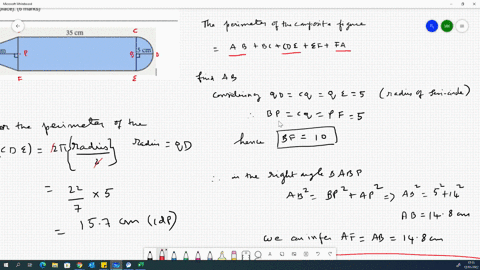 place). (6 marks)
35 cm
C
m
P
Q
5 cm
D
F
E
The perimeter of the composite figure
= AB + BC + CDE + EF + FA
find AB
Considering QD = CQ = QE = 5 (radius of semi-circle)
∴ BP = CQ = PF = 5
hence BF = 10
∴ in the right angle Δ ABP
AB² = BP² + AP² ⇒ AB² = 5² + 14²
AB = 14.8 cm
We can infer AF = AB = 14.8 cm
or the perimeter of the
(CDE) = 2π(radius/2) radius = QD
= 22/7 × 5
= 15.7 cm (1dp)